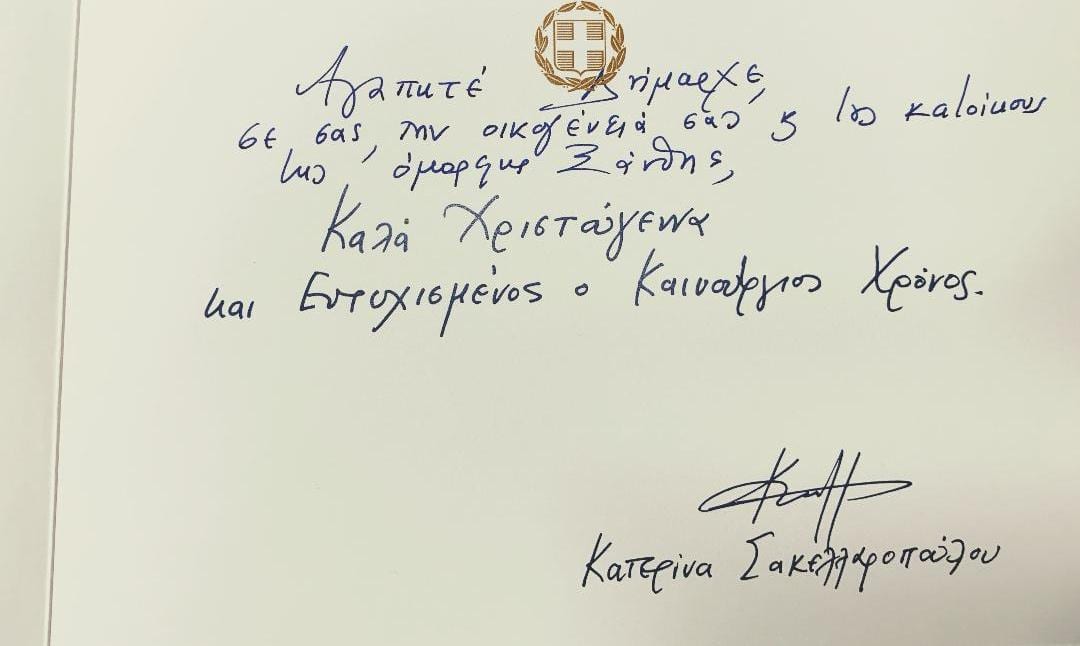 Αγαπητέ Δήμαρχε,
σε σας, την οικογένειά σας & τους κατοίκους
της όμορφης Ξάνθης,
Καλά Χριστούγεννα
και Ευτυχισμένος ο Καινούργιος Χρόνος.
Κατερίνα Σακελλαροπούλου